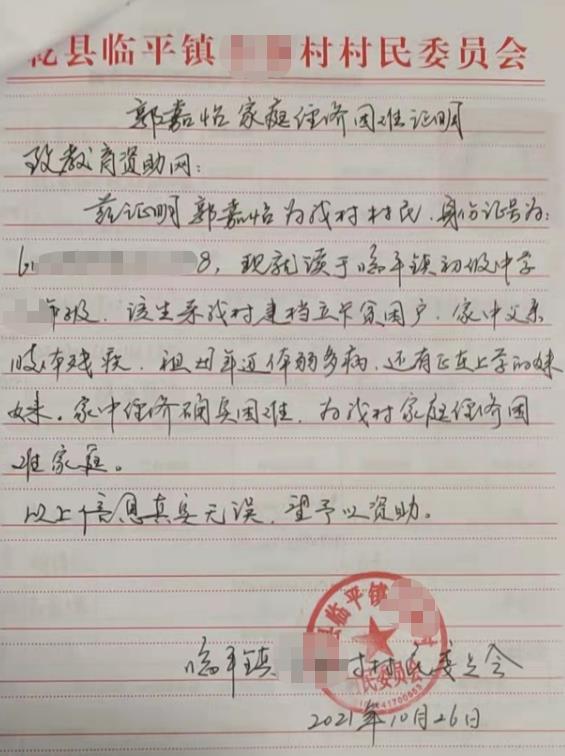 乾县临平镇 村村民委员会
郭嘉怡家庭经济困难证明
致教育资助网:
兹证明郭嘉怡为我村村民,身份证号为:
61 8,现就读于临平镇初级中学
年级,该生系我村建档立卡贫困户,家中父亲
肢体残疾,祖母年迈体弱多病,还有正在上学的妹
妹。家中经济确实困难,为我村家庭经济困
难家庭。
以上信息真实无误,望予以资助。
县临平镇
民委员会
临平镇 村村民委员会
2021年10月26日